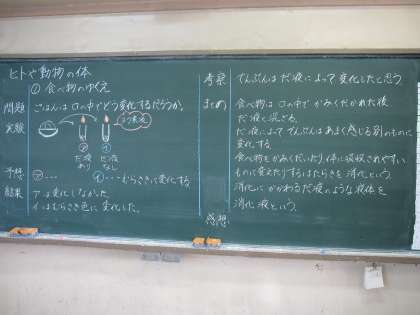 ヒトや動物の体
① 食べ物のゆくえ
問題 ごはんは口の中でどう変化するだろうか。
実験
ヨウ素液
ア イ
だ液 だ液
あり なし
予想 ア・・・
イ・・・むらさきに変化する
結果 アは変化しなかった。
イはむらさき色に変化した。
考察 でんぷんはだ液によって変化したと思う
まとめ 食べ物は口の中でかみくだかれた後
だ液と混ざる。
だ液によってでんぷんはあまく感じる別のものに
変化する。
食べ物をかみくだいたり体に吸収されやすい
ものに変えたりするはたらきを消化という。
消化にかかわるだ液のような液体を
消化液という。
感想